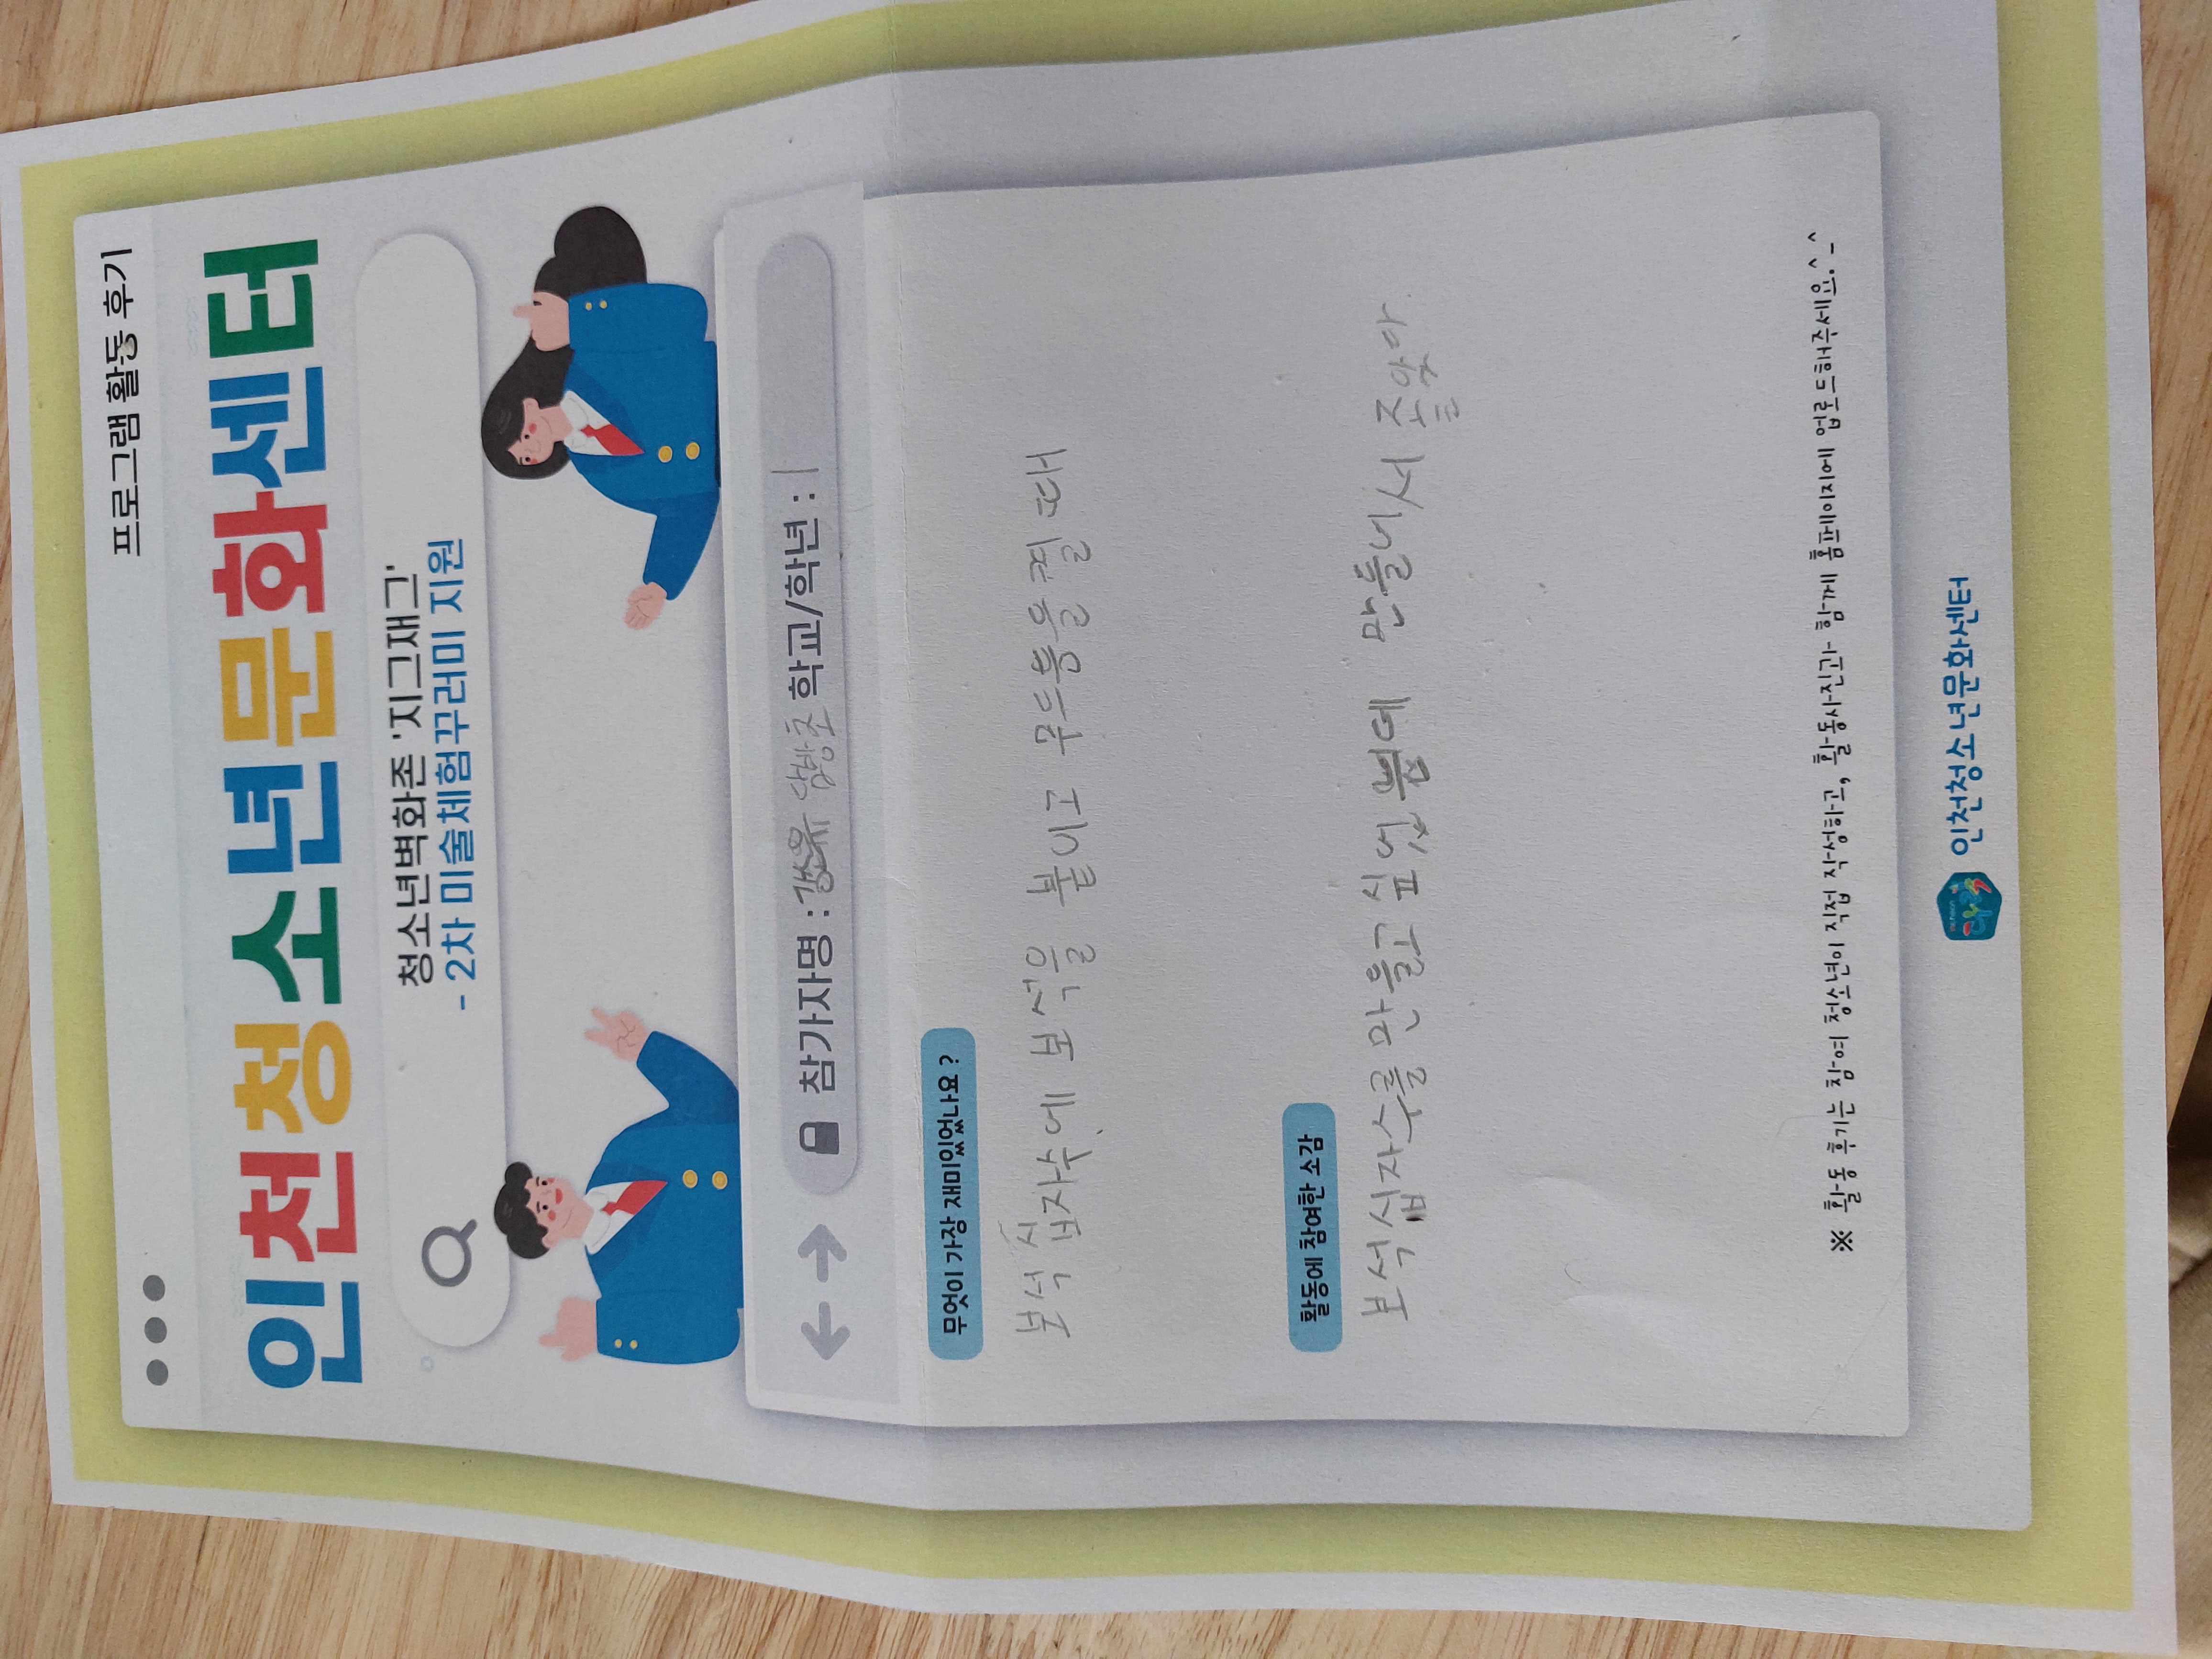 프로그램 활동 후기
인천청소년문화센터
청소년벽화존 '지그재그'
- 2차 미술체험꾸러미 지원
참가자명 : 학교/학년 : 1
무엇이 가장 재미있었나요?
보석 십자수에 보석을 붙이고 무드등을 켤 때
활동에 참여한 소감
보석십자수를 만들고 싶었 만들니서 좋았아
※ 활동 후기는 참여 청소년이 직접 작성하고, 활동사진과 함께 홈페이지에 업로드해주세요.^_^
인천청소년문화센터